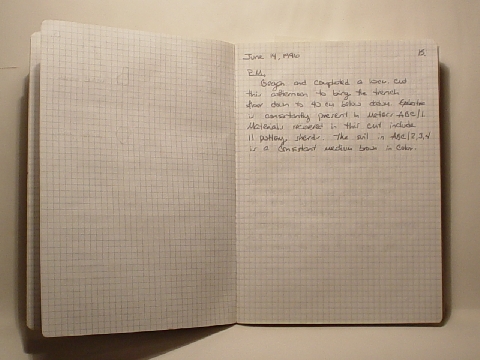 June 14, 1996 13
P.M.
Began and completed a 10cm cut
this afternoon to bring the trench
floor down to 40 cm below datum.
is consistently present in Meters ABC/1.
Materials recovered in this cut include
11 pottery sherds. The soil in ABC/2,3,4
is a consistent medium brown in color.